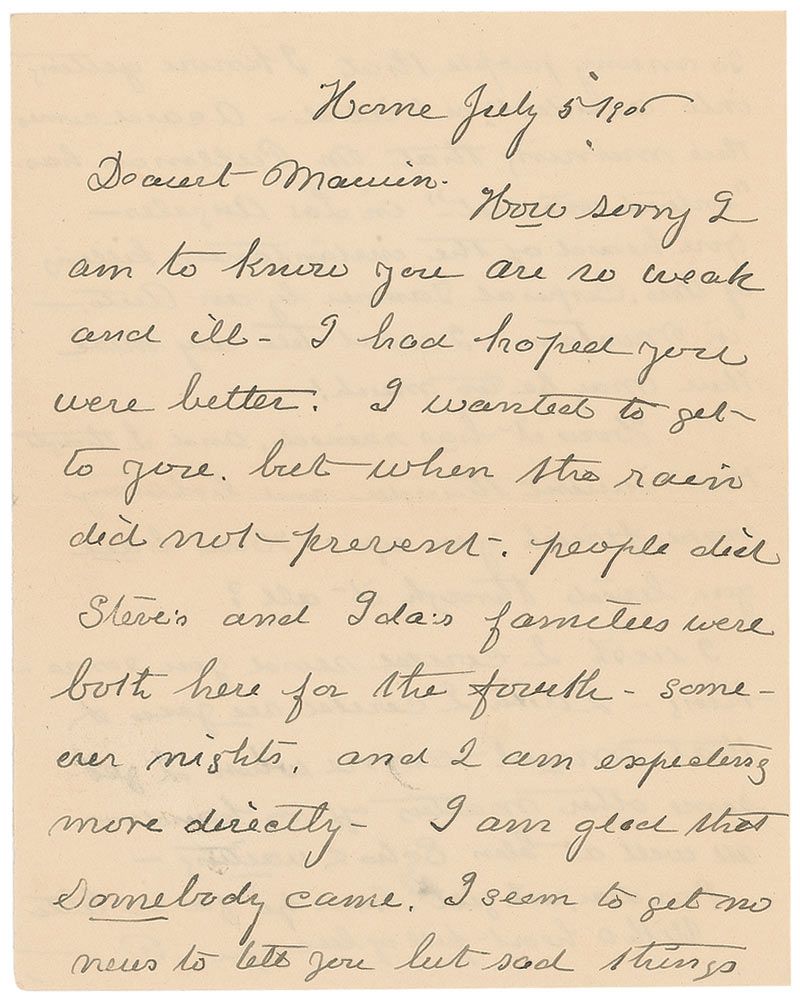 Home July 5 1905
Dearest Mamin.
How sorry I
am to know you are so weak
and ill - I had hoped you
were better. I wanted to get
to you. but when the rain
did not prevent. people did
Steve's and Ida's families were
both here for the fourth - some
over nights, and I am expecting
more directly - I am glad that
somebody came. I seem to get no
news to tell you but sad things